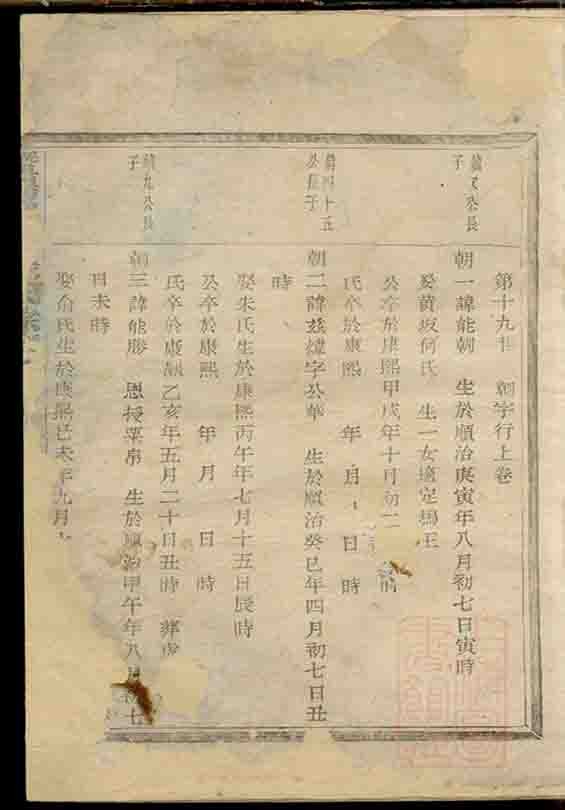 第十九世 朝字行上卷
公長
子
朝一諱能朝 生於順治庚寅年八月初七日寅時
娶黃坂何氏 生一女適定塢王
公卒於康熙甲戌年十月初二 時
氏卒於康熙 年 月 日 時
四十五
公長子
朝二諱茲煒字公華 生於順治癸巳年四月初七日丑
時
娶朱氏生於康熙丙午年七月十五日辰時
公卒於康熙 年 月 日 時
氏卒於康熙乙亥年五月二十日丑時 葬
九公長
子
朝三諱能勝 恩授粟帛 生於順治甲午年八月初七
日未時
娶俞氏生於康熙己未年九月